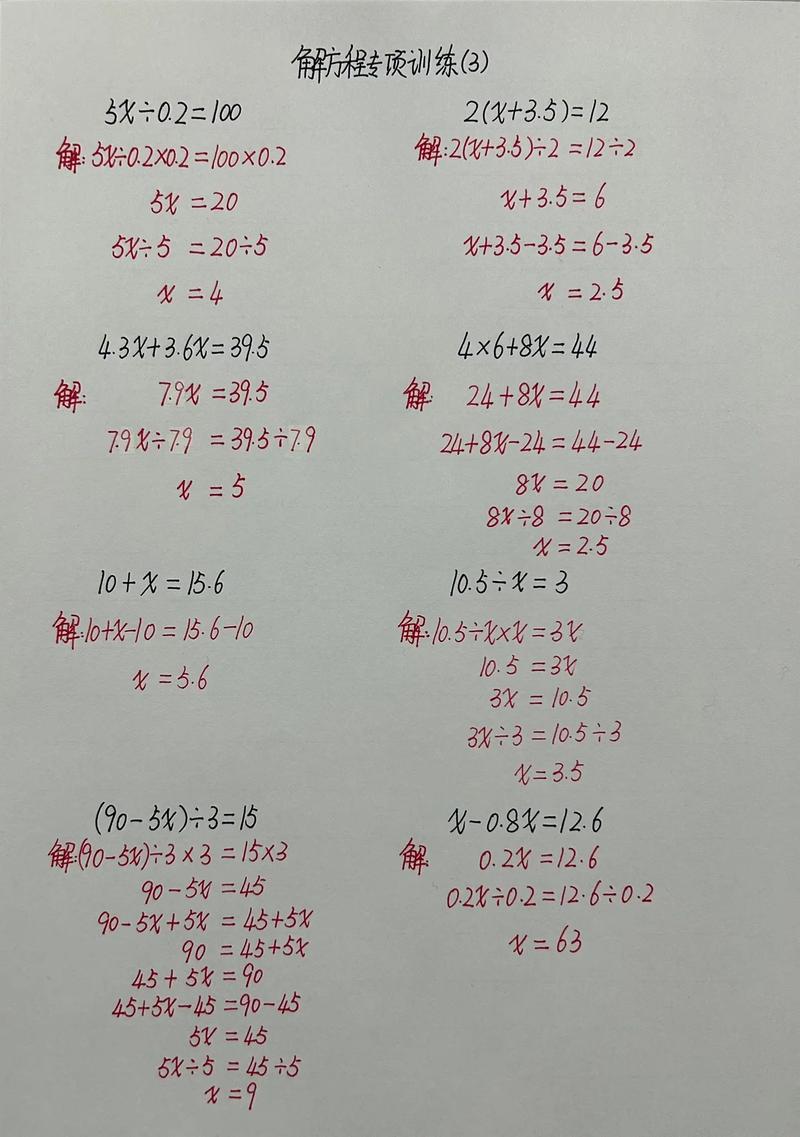 解方程专项训练(3)
5x÷0.2=100
解:5x÷0.2×0.2=100×0.2
5x=20
5x÷5=20÷5
x=4
2(x+3.5)=12
解:2(x+3.5)÷2=12÷2
x+3.5=6
x+3.5-3.5=6-3.5
x=2.5
4.3x+3.6x=39.5
解:7.9x=39.5
7.9x÷7.9=39.5÷7.9
x=5
4×6+8x=44
解:24+8x=44
24+8x-24=44-24
8x=20
8x÷8=20÷8
x=2.5
10+x=15.6
解:10+x-10=15.6-10
x=5.6
10.5÷x=3
解:10.5÷x×x=3x
10.5=3x
3x=10.5
3x÷3=10.5÷3
x=3.5
(90-5x)÷3=15
解:(90-5x)÷3×3=15×3
90-5x=45
90-5x+5x=45+5x
90=45+5x
45+5x=90
45+5x-45=90-45
5x=45
5x÷5=45÷5
x=9
x-0.8x=12.6
解:0.2x=12.6
0.2x÷0.2=12.6÷0.2
x=63